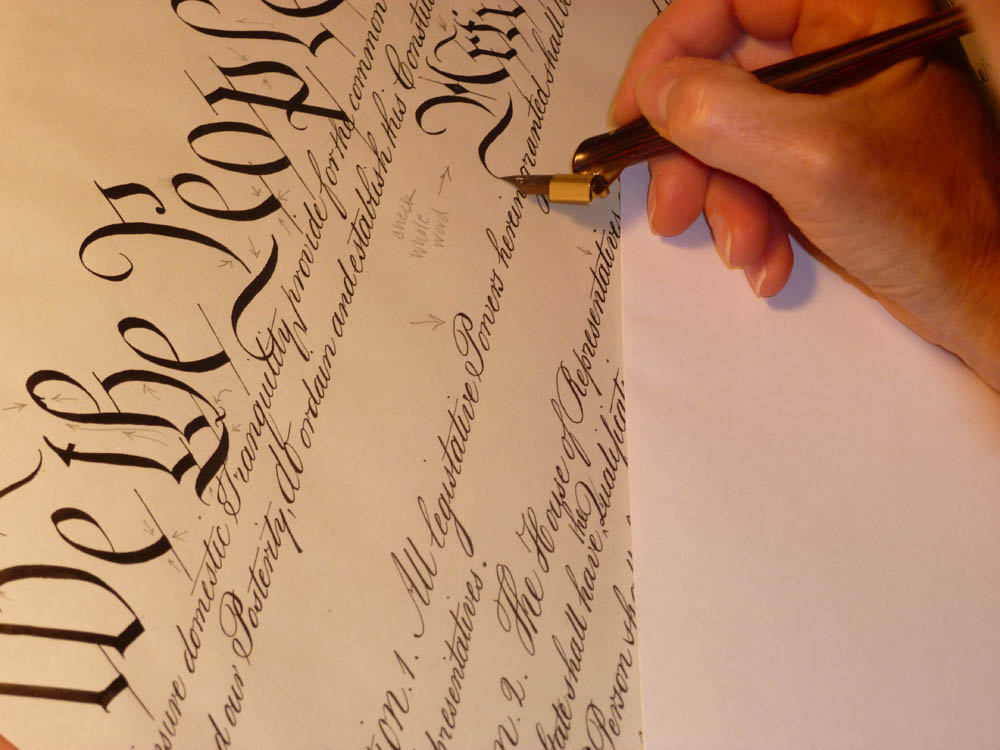 We the Peopl
insure domestic Tranquility, provide for the common
d our Posterity, do ordain and establish this Constitu
Arti
check
whole
word
ion. 1. All legislative Powers herein granted shall
presentatives.
n. 2. The House of Representatives
State shall have the Qualificat
Person shall